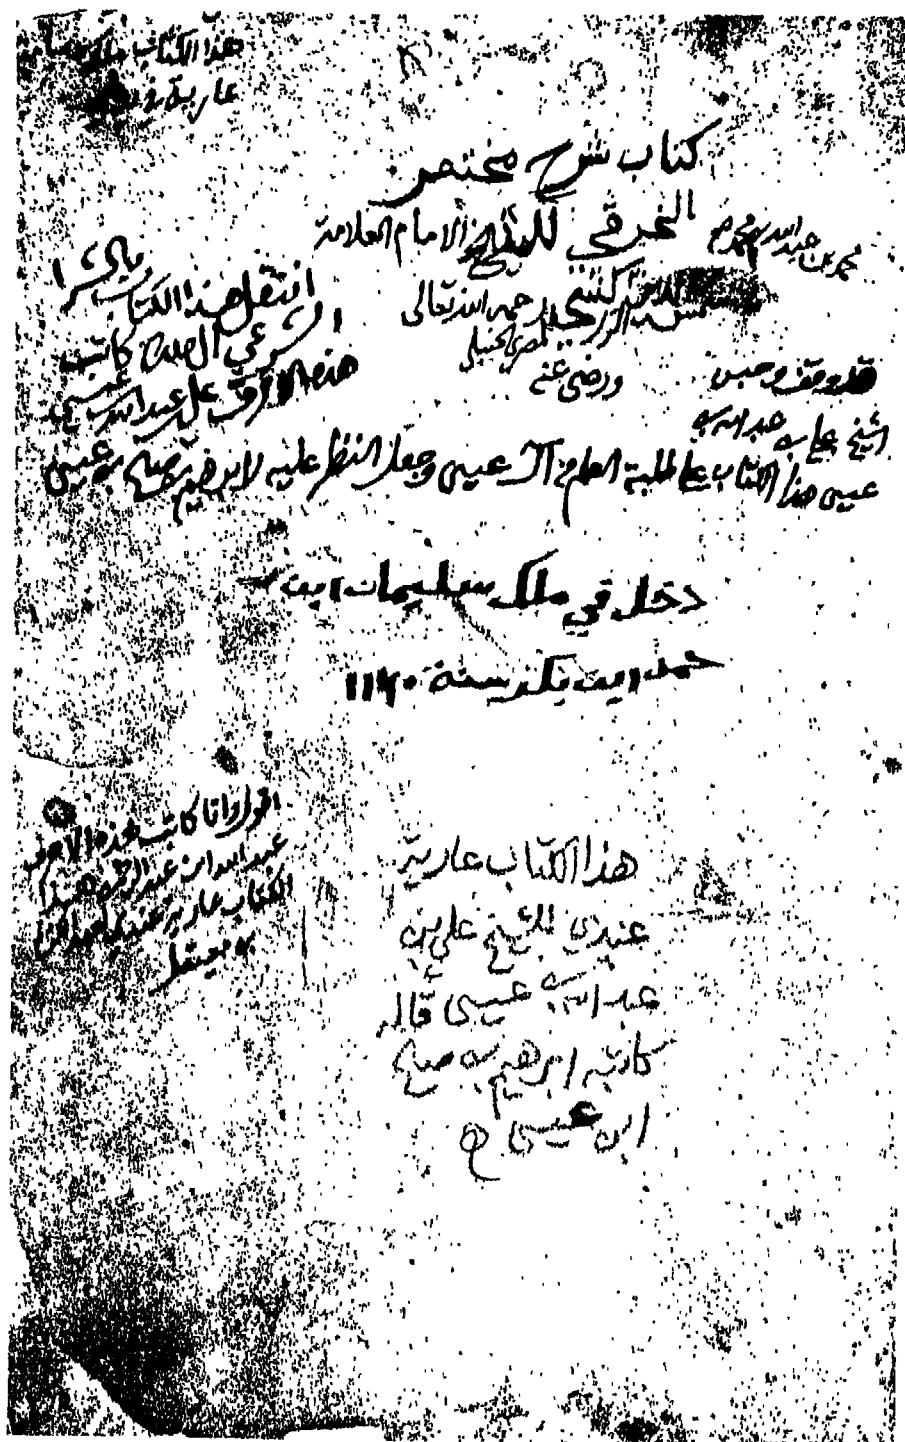 هذا الكتاب ملك
عارية في
كتاب شرح مختصر
الخرقي للشيخ الامام العلامة
محمد بن عبد الله بن محمد
شمس الدين الزركشي رحمه الله تعالى
المصري الحنبلي
ورضي عنه
انتقل هذا الكتاب بالشرا
الشرعي الى ملك كاتب
هذه الاحرف علي بن عبد الله بن عيسى
قد وقف وحبس
الشيخ علي بن عبد الله بن
عيسى هذا الكتاب على طلبة العلم من آل عيسى وجعل النظر عليه لابراهيم بن صالح بن عيسى
دخل في ملك سليمان ابن
حمد ابن سنة ١١٢٠
اقول وانا كاتب هذه الاحرف
عبد الله ابن عبد الرحمن هذا
الكتاب عارية عندي
هذا الكتاب عارية
عندي للشيخ علي بن
عبد الله بن عيسى قاله
كاتبه ابرهيم بن صالح
ابن عيسى